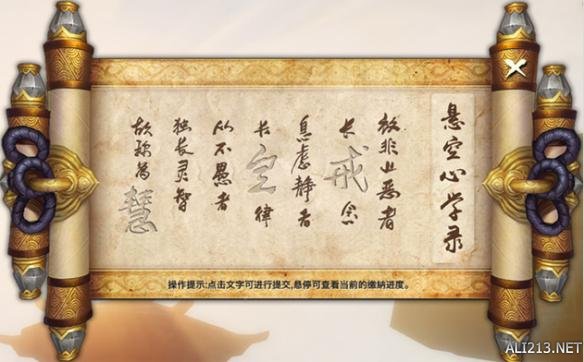 悬空心学录
非止恶者
长戒念
息虑静者
长定律
从不愚者
独长灵智
故称为慧
操作提示:点击文字可进行提交,悬停可查看当前的缴纳进度。
ALI213.NET